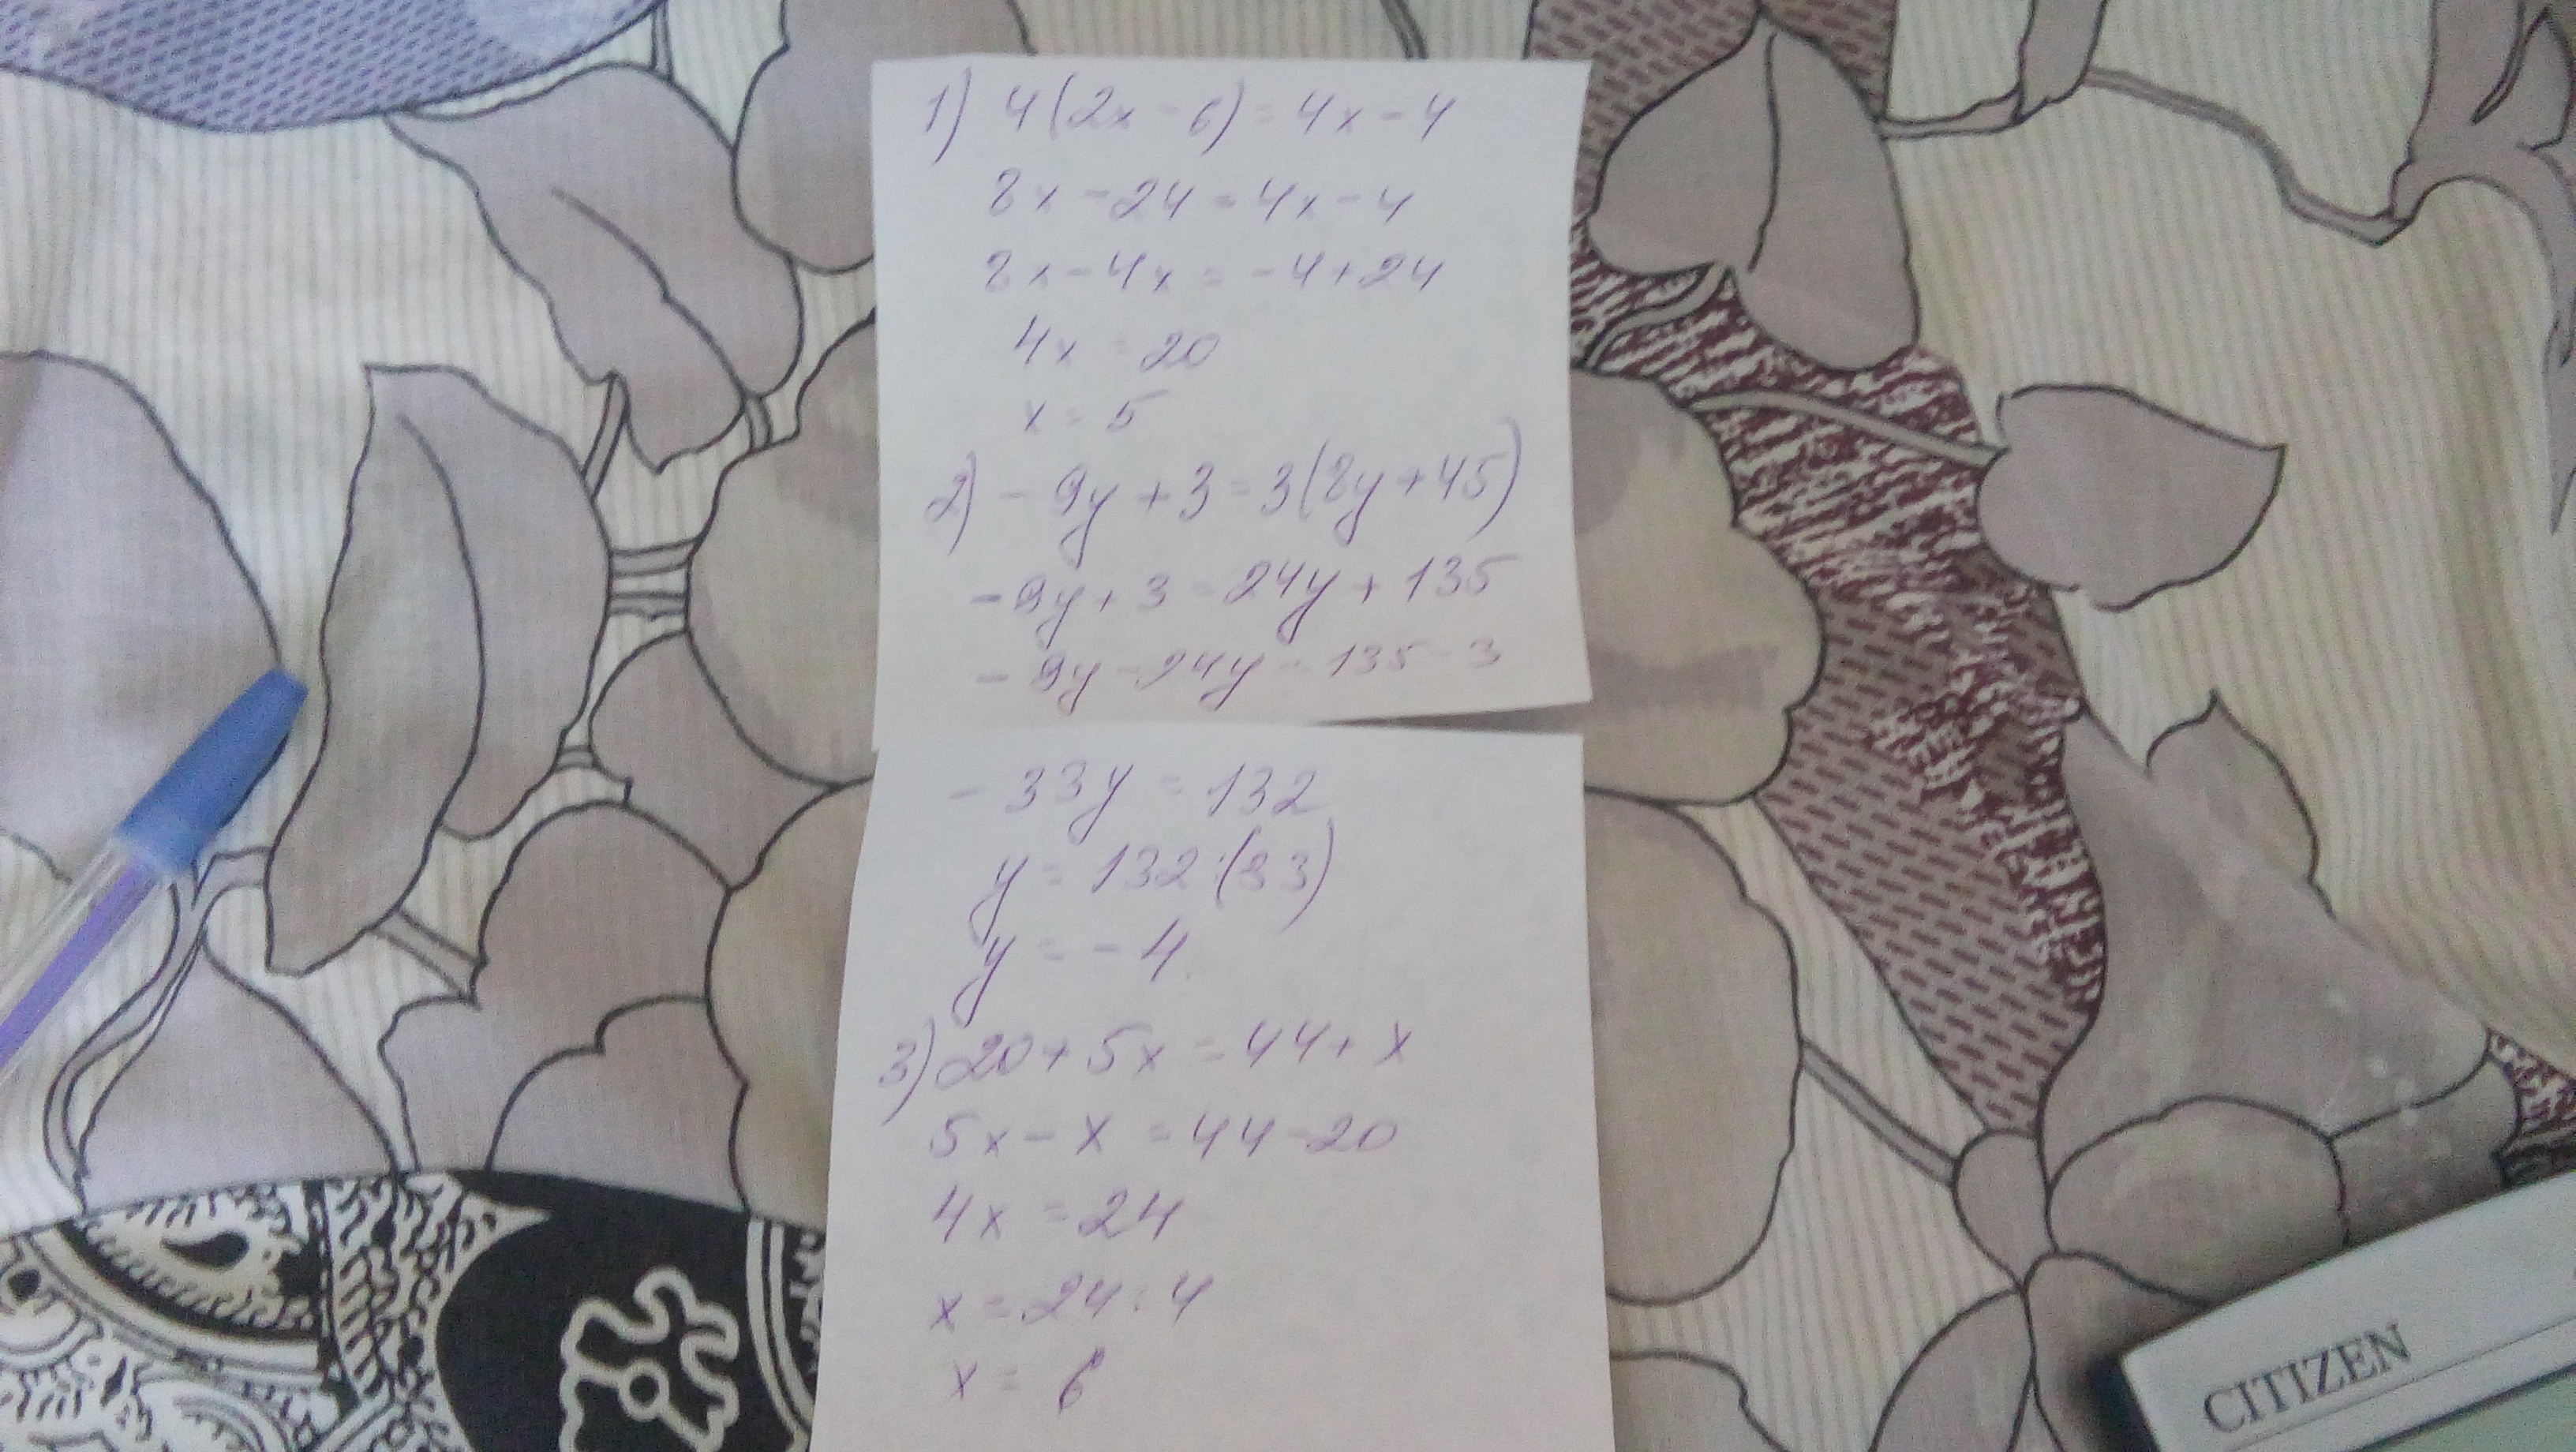 1) 4(2x - 6) = 4x - 4
8x - 24 = 4x - 4
8x - 4x = -4 + 24
4x = 20
x = 5
2) - 9y + 3 = 3(8y + 45)
-9y + 3 = 24y + 135
-9y - 24y = 135 - 3
- 33y = 132
y = 132 : (33)
y = - 4
3) 20 + 5x = 44 + x
5x - x = 44 - 20
4x = 24
x = 24 : 4
x = 6
CITIZEN